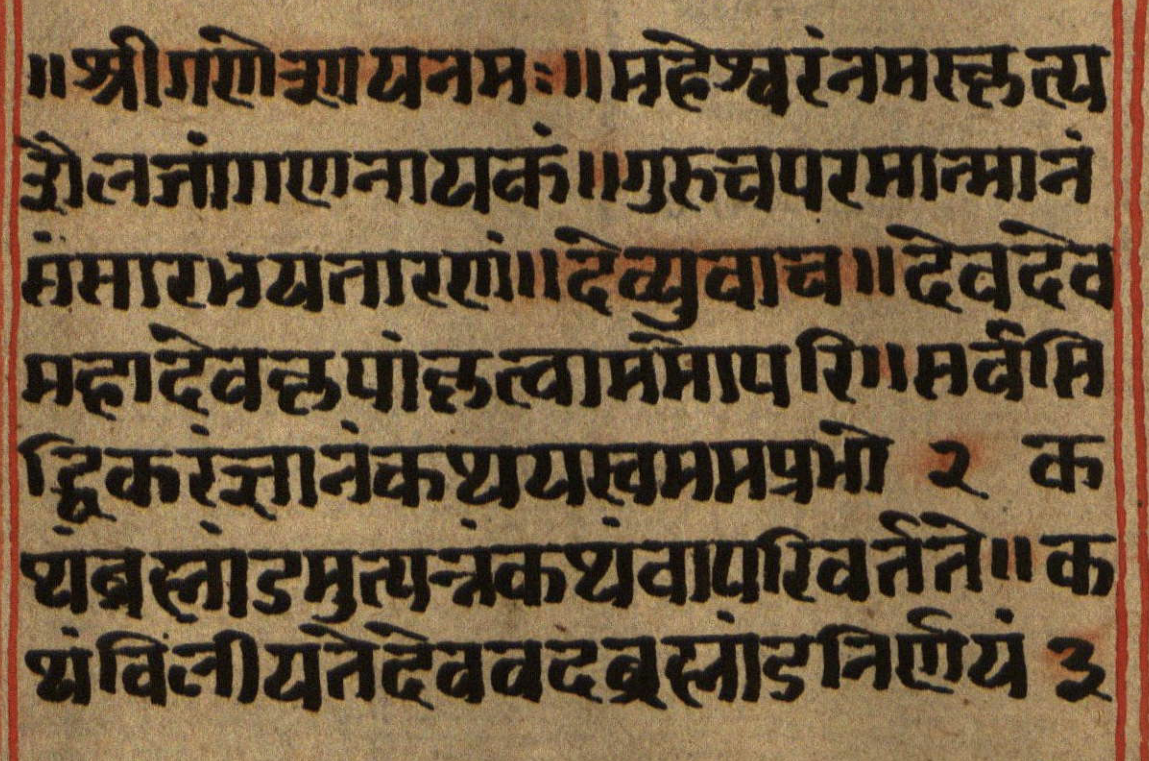 ॥श्रीगणेशायनमः॥महेश्वरंनमस्कृत्य
शैलजांगणनायकं॥गुरुचपरमात्मानं
संसारभयतारणं॥॥देव्युवाच॥देवदेव
महादेवकृपांकृत्वाममोपरि॥सर्वसि
द्धिकरंज्ञानंकथयस्वममप्रभो २ क
थंब्रह्मांडमुत्पन्नंकथंवापरिवर्तते॥क
थंविलीयतेदेववदब्रह्मांडनिर्णयं ३